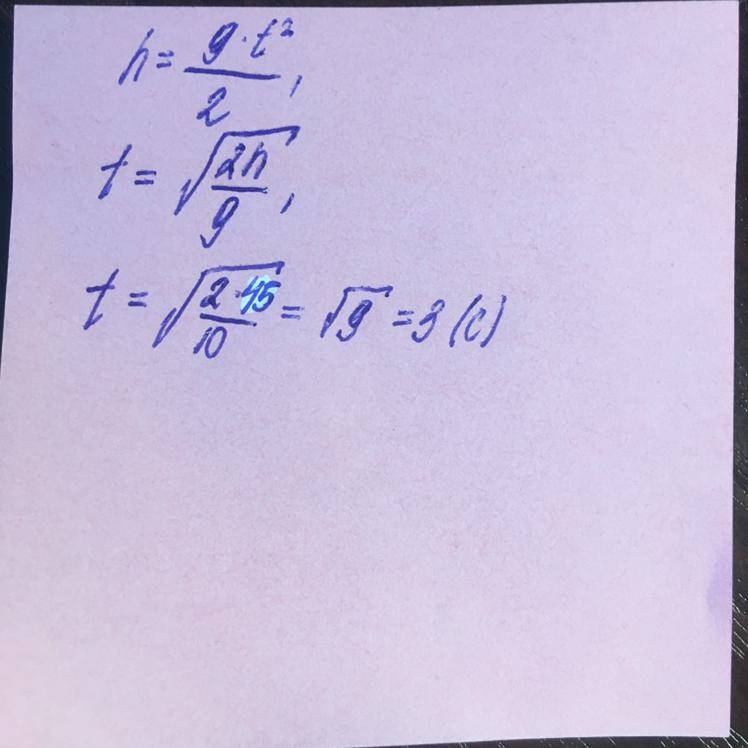 h = g·t² / 2,
t = √(2h / g),
t = √(2·45 / 10) = √9 = 3 (с)